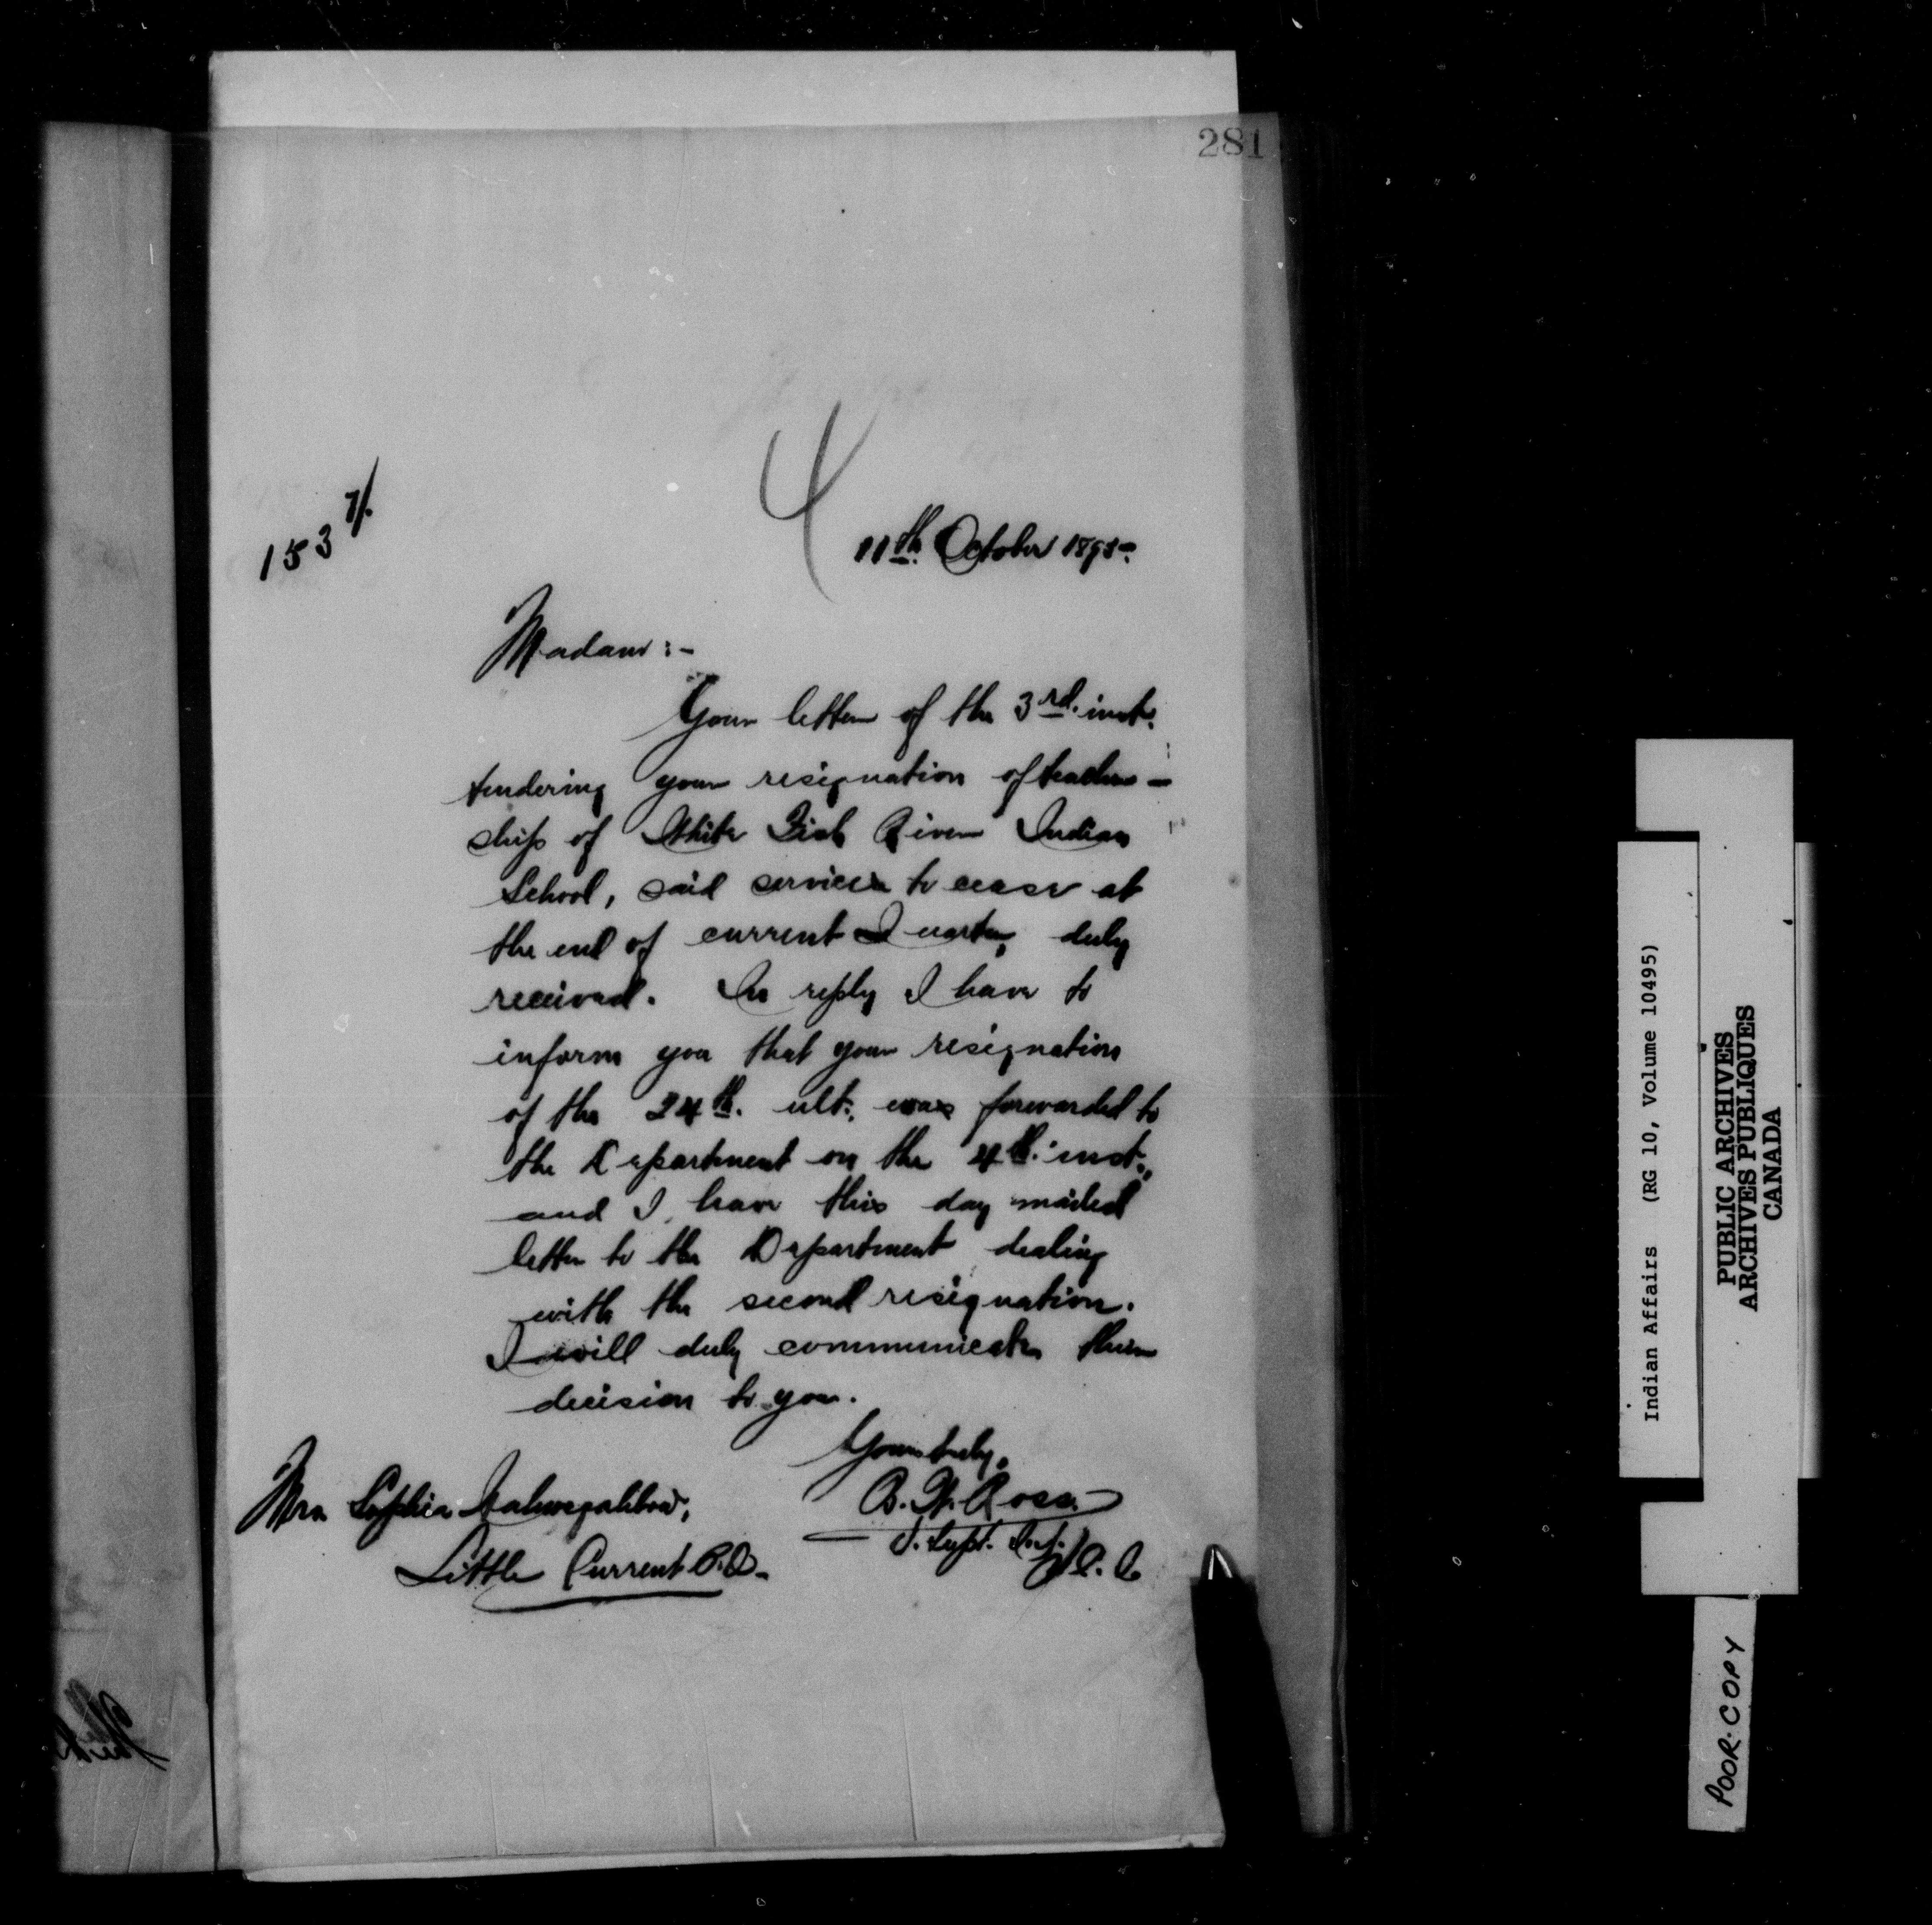 281
4
153 7/.
11th. October 1895.
Madam :-
Your letter of the 3rd. inst.
tendering your resignation of teacher-
ship of White Fish River Indian
School, said services to cease at
the end of current Quarter, duly
received. In reply I have to
inform you that your resignation
of the 24th. ult., was forwarded to
the Department on the 4th. inst.,
and I have this day mailed
letter to the Department dealing
with the second resignation.
I will duly communicate their
decision to you.
Yours truly,
B. W. Ross.
Mrs Sophia Nahwegahbow,
Little Current P.O.
Indian Affairs (RG 10, Volume 10495)
PUBLIC ARCHIVES
ARCHIVES PUBLIQUES
CANADA
POOR COPY